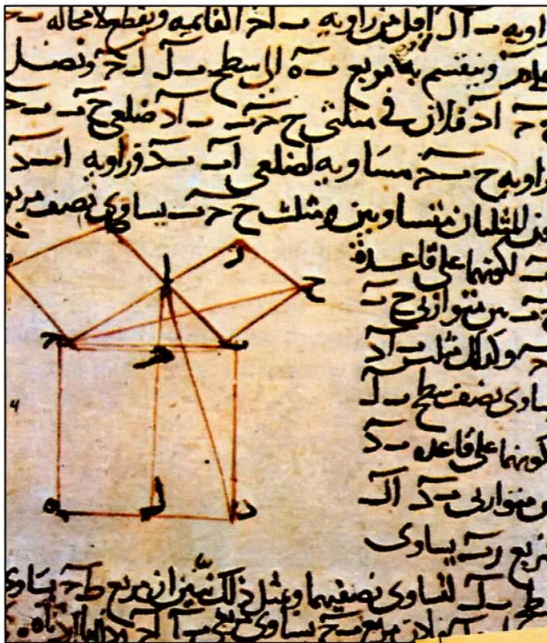 زاويه ب ا ل اقل من زاويه ب ا ح القائمه ويقطع لا محاله ب
وينقسم به مربع ب ه الى سطحى ب ل ل ح ونصل
ح ا د فلان فى مثلثى ح ح ب ب ا د ضلعى ح ب ب ح
زاويه ح ب ح مساويه لضلعى ا ب ب د وزاويه ا ب د
المثلثان متساويين ومثلث ح ح ب يساوى نصف مربع
لكونهما على قاعدة
ح ب بين متوازيى ح ب
ح وكذلك مثلث ب ا د
يساوى نصف سطح ب ل
لكونهما على قاعده ب د
متوازيى ب د ا ل
مربع ر ب يساوى
ب ل لتساوى نصفيهما وبمثل ذلك نبين ان مربع ط ح يساوى
مربع ب ح يساوى مربعى ب ا ا ح
ا
ر
ح
ح
ب
ه
ل
د